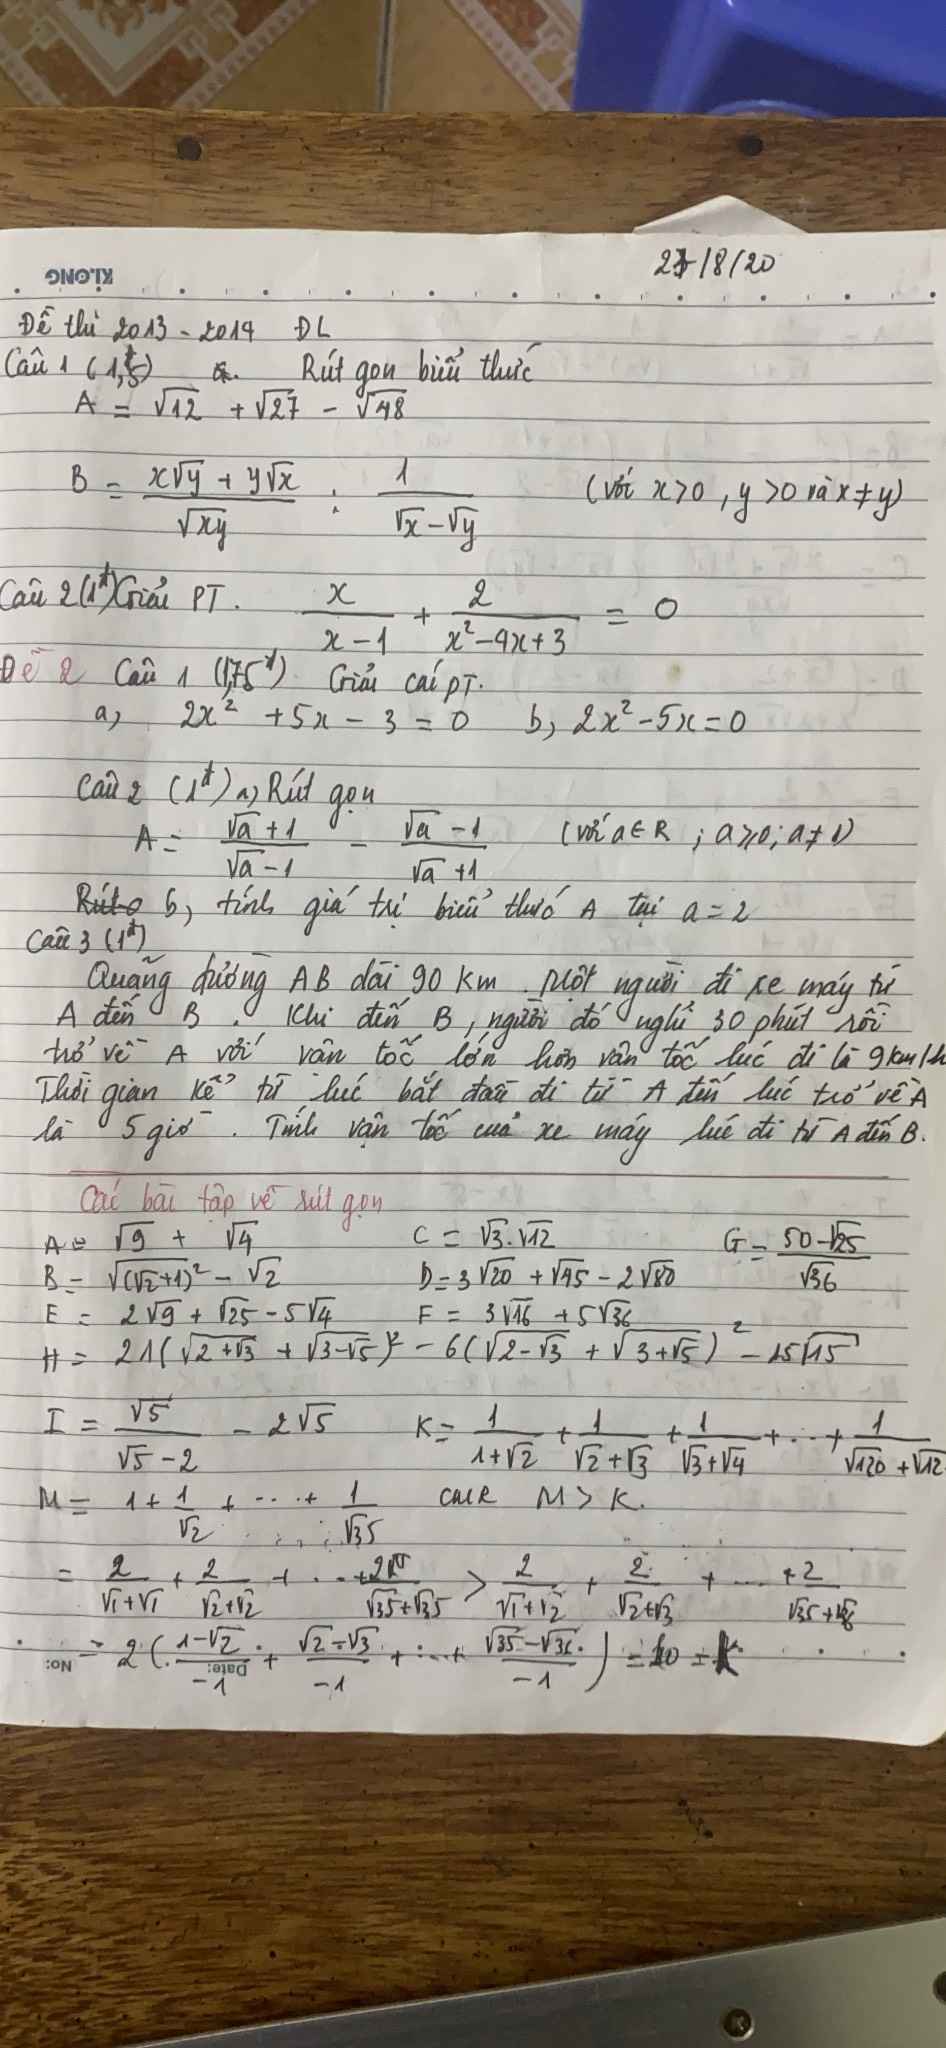 KLONG
27/8/20
Đề thi 2013 - 2014 ĐL
Câu 1 (1,5đ) Rút gọn biểu thức
A = √12 + √27 - √48
B = (x√y + y√x)/√xy : 1/(√x - √y) (với x>0, y>0 và x≠y)
Câu 2 (1đ) Giải PT. x/(x-1) + 2/(x²-4x+3) = 0
Đề 2 Câu 1 (1,75đ) Giải các PT.
a, 2x² + 5x - 3 = 0 b, 2x² - 5x = 0
Câu 2 (1đ) a, Rút gọn
A = (√a + 1)/(√a - 1) - (√a - 1)/(√a + 1) (với a∈R ; a≥0; a≠1)
b, tính giá trị biểu thức A tại a = 2
Câu 3 (1đ)
Quãng đường AB dài 90 Km. Một người đi xe máy từ
A đến B. Khi đến B, người đó nghỉ 30 phút rồi
trở về A với vận tốc lớn hơn vận tốc lúc đi là 9km/h
Thời gian kể từ lúc bắt đầu đi từ A đến lúc trở về A
là 5 giờ. Tính vận tốc của xe máy lúc đi từ A đến B.
Các bài tập về rút gọn
A = √9 + √4 C = √3.√12 G = (50-√25)/√36
B = √((√2+1)²) - √2 D = 3√20 + √45 - 2√80
E = 2√9 + √25 - 5√4 F = 3√16 + 5√36
H = 21(√(2+√3) + √(3-√5))² - 6(√(2-√3) + √(3+√5))² - 15√15
I = √5/(√5-2) - 2√5 K = 1/(1+√2) + 1/(√2+√3) + 1/(√3+√4) + ... + 1/(√120+√12
M = 1 + 1/√2 + ... + 1/√35 CMR M > K.
= 2/(√1+√1) + 2/(√2+√2) + ... + 2/(√35+√35) > 2/(√1+√2) + 2/(√2+√3) + ... + 2/(√35+√36)
= 2((1-√2)/-1 + (√2-√3)/-1 + ... + (√35-√36)/-1) = 10 = K
No: Date: